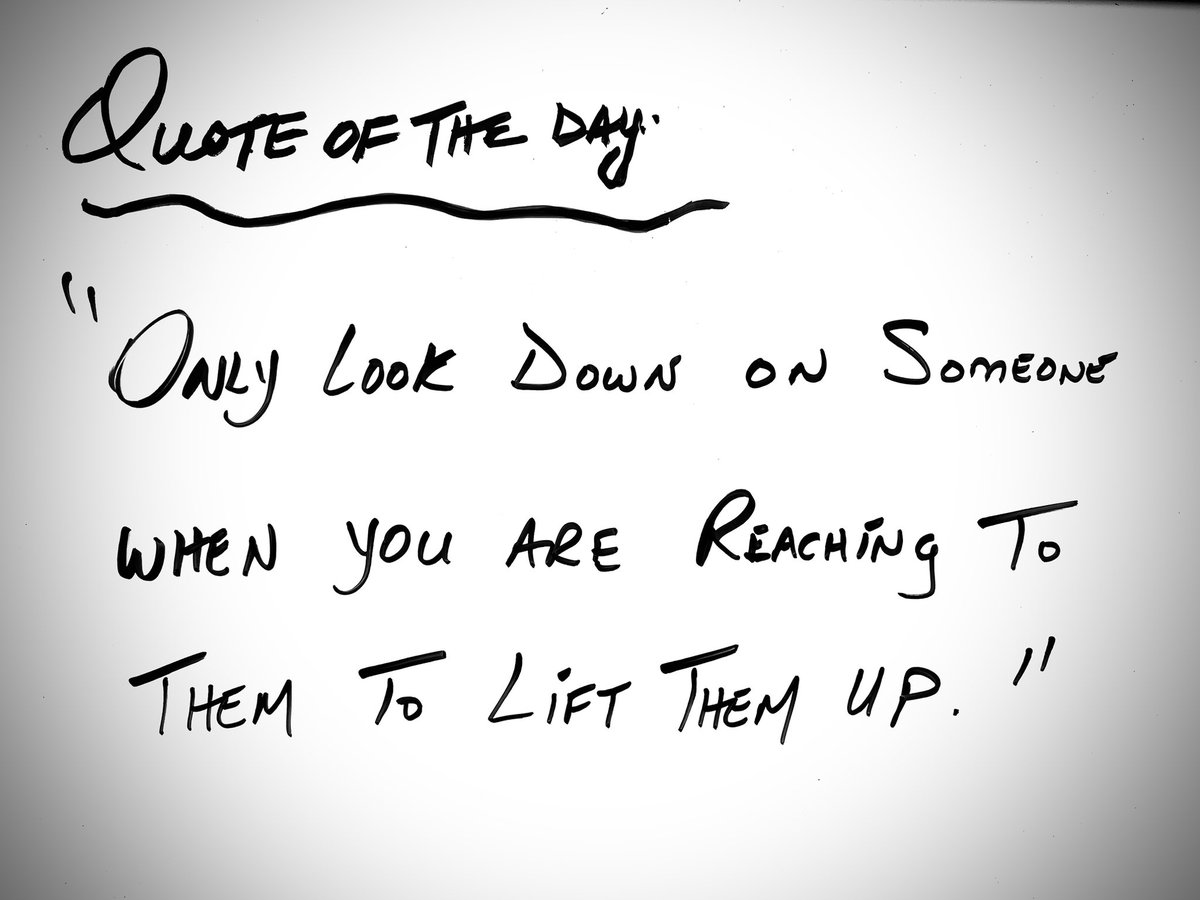 QUOTE OF THE DAY.
"ONLY LOOK DOWN ON SOMEONE
WHEN YOU ARE REACHING TO
THEM TO LIFT THEM UP."